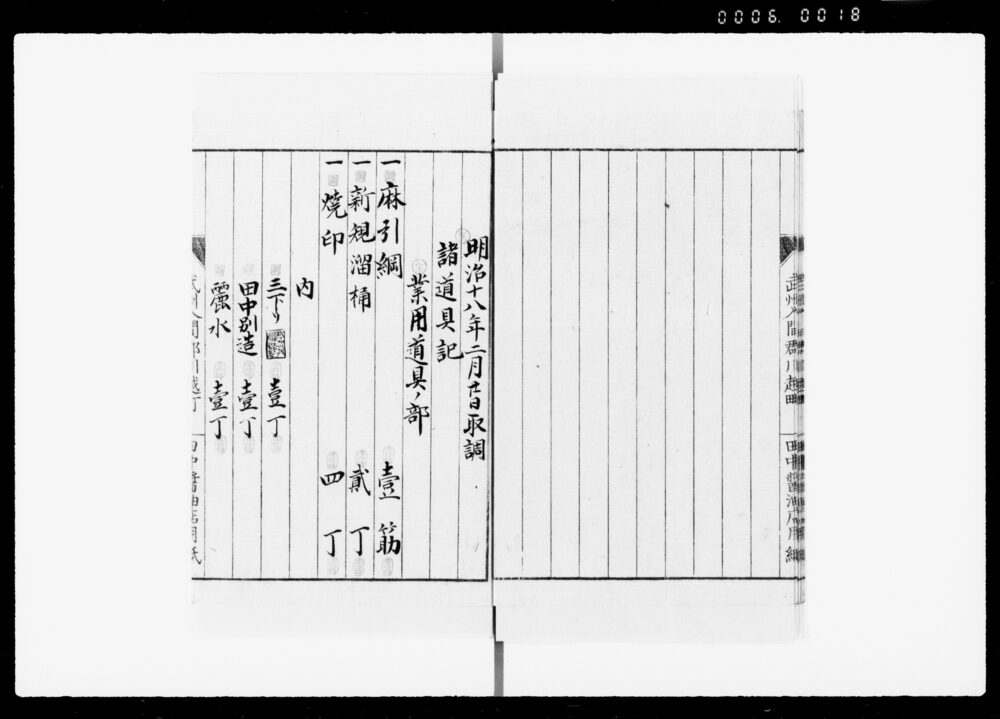 0006. 0018
武州入間郡川越町 田中醤油店用紙
明治十八年二月廿日取調
諸道具記
業用道具ノ部
一麻引綱 壹筋
一新規溜桶 貳丁
一燒印 四丁
内
三下り 壹丁
田中別造 壹丁
水 壹丁
武州入間郡川越町 田中醤油店用紙